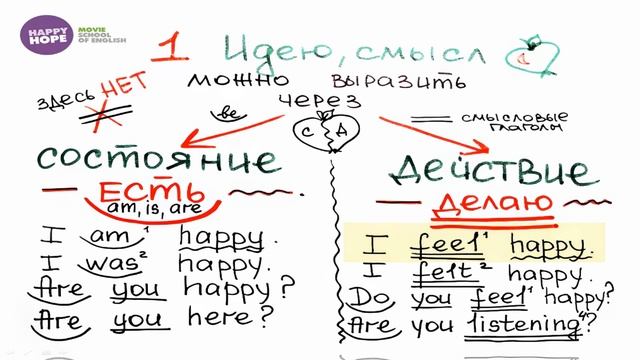 HAPPY HOPE
MOVIE SCHOOL OF ENGLISH
1 Идею, смысл
можно выразить
через
здесь НЕТ
be
смысловые глаголы
С Д
состояние
действие
ЕСТЬ
am, is, are
делаю
I am¹ happy.
I was² happy.
Are you happy?
Are you here?
I feel¹ happy.
I felt² happy.
Do you feel¹ happy?
Are you listening⁴?